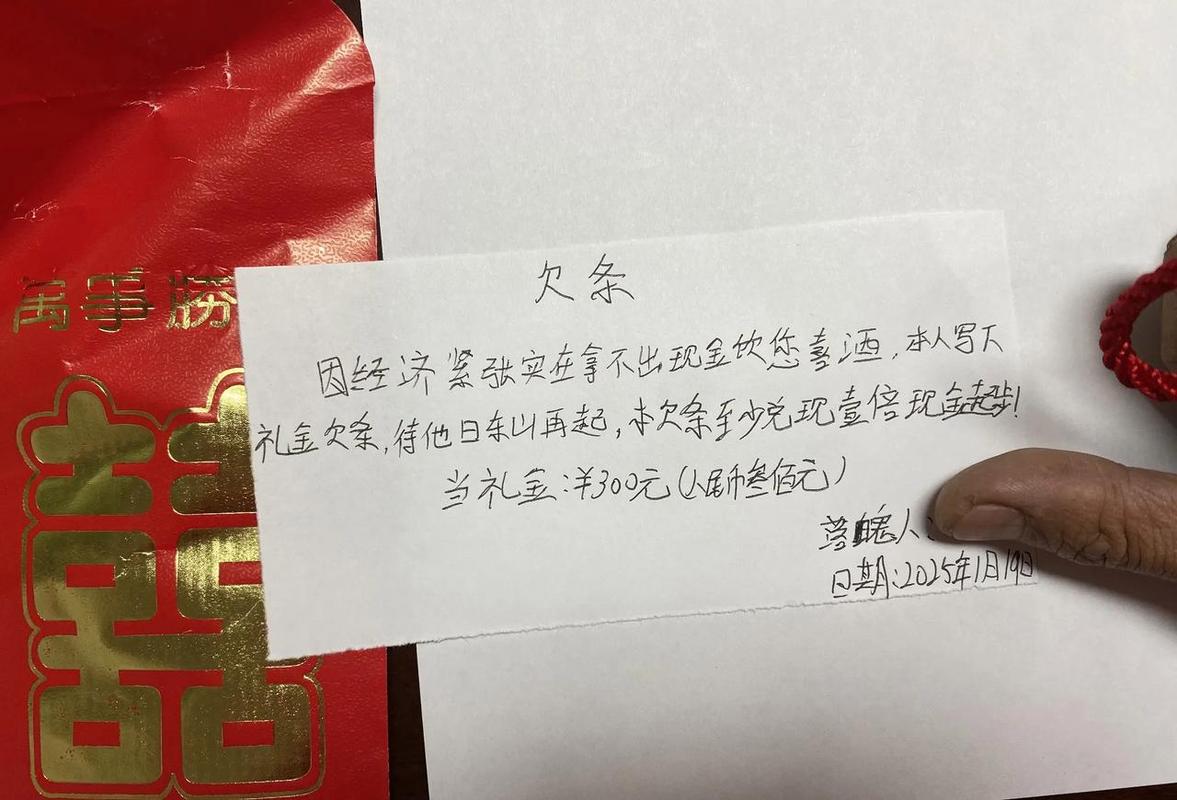 萬事勝
囍
欠条
因经济紧张实在拿不出现金饮您喜酒，本人写下
礼金欠条，待他日东山再起，本欠条至少兑现壹倍现金起步！
当礼金：￥300元（人民币叁佰元）
落魄人：
日期：2025年1月19日